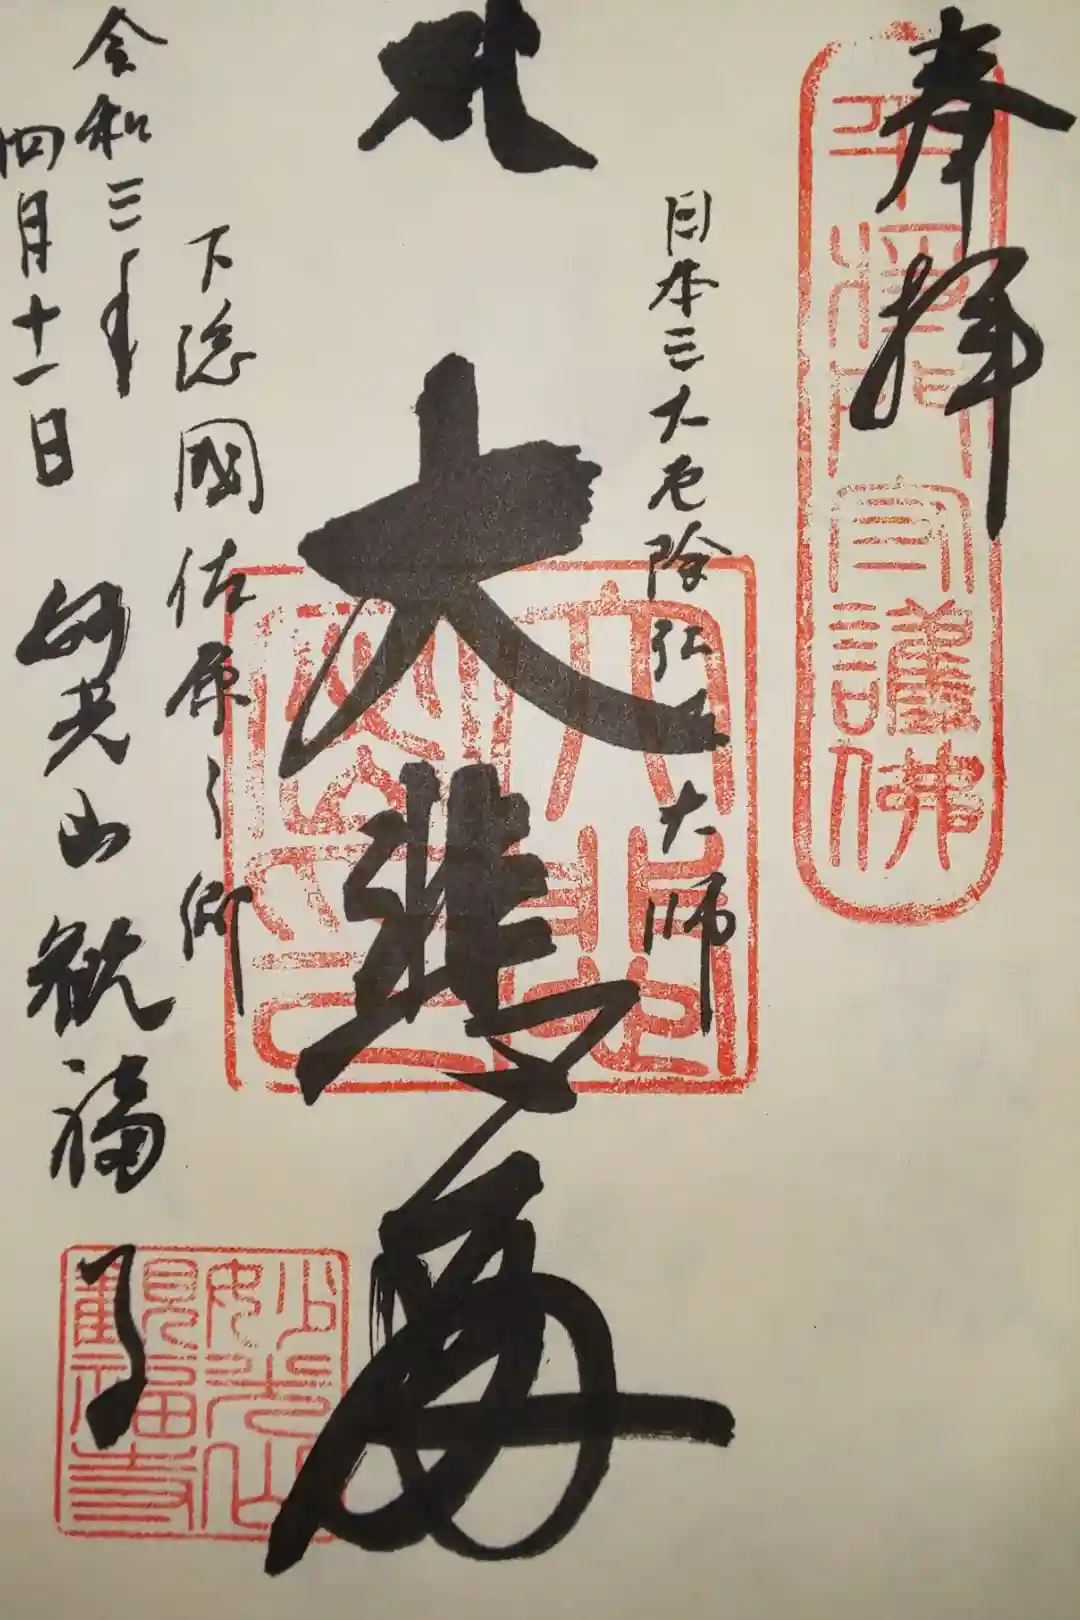 奉拝
平將門守護佛
日本三大厄除弘法大師
大悲殿
下総國佐原之郷
令和三年
四月十一日
妙光山観福寺
妙光山
觀福寺